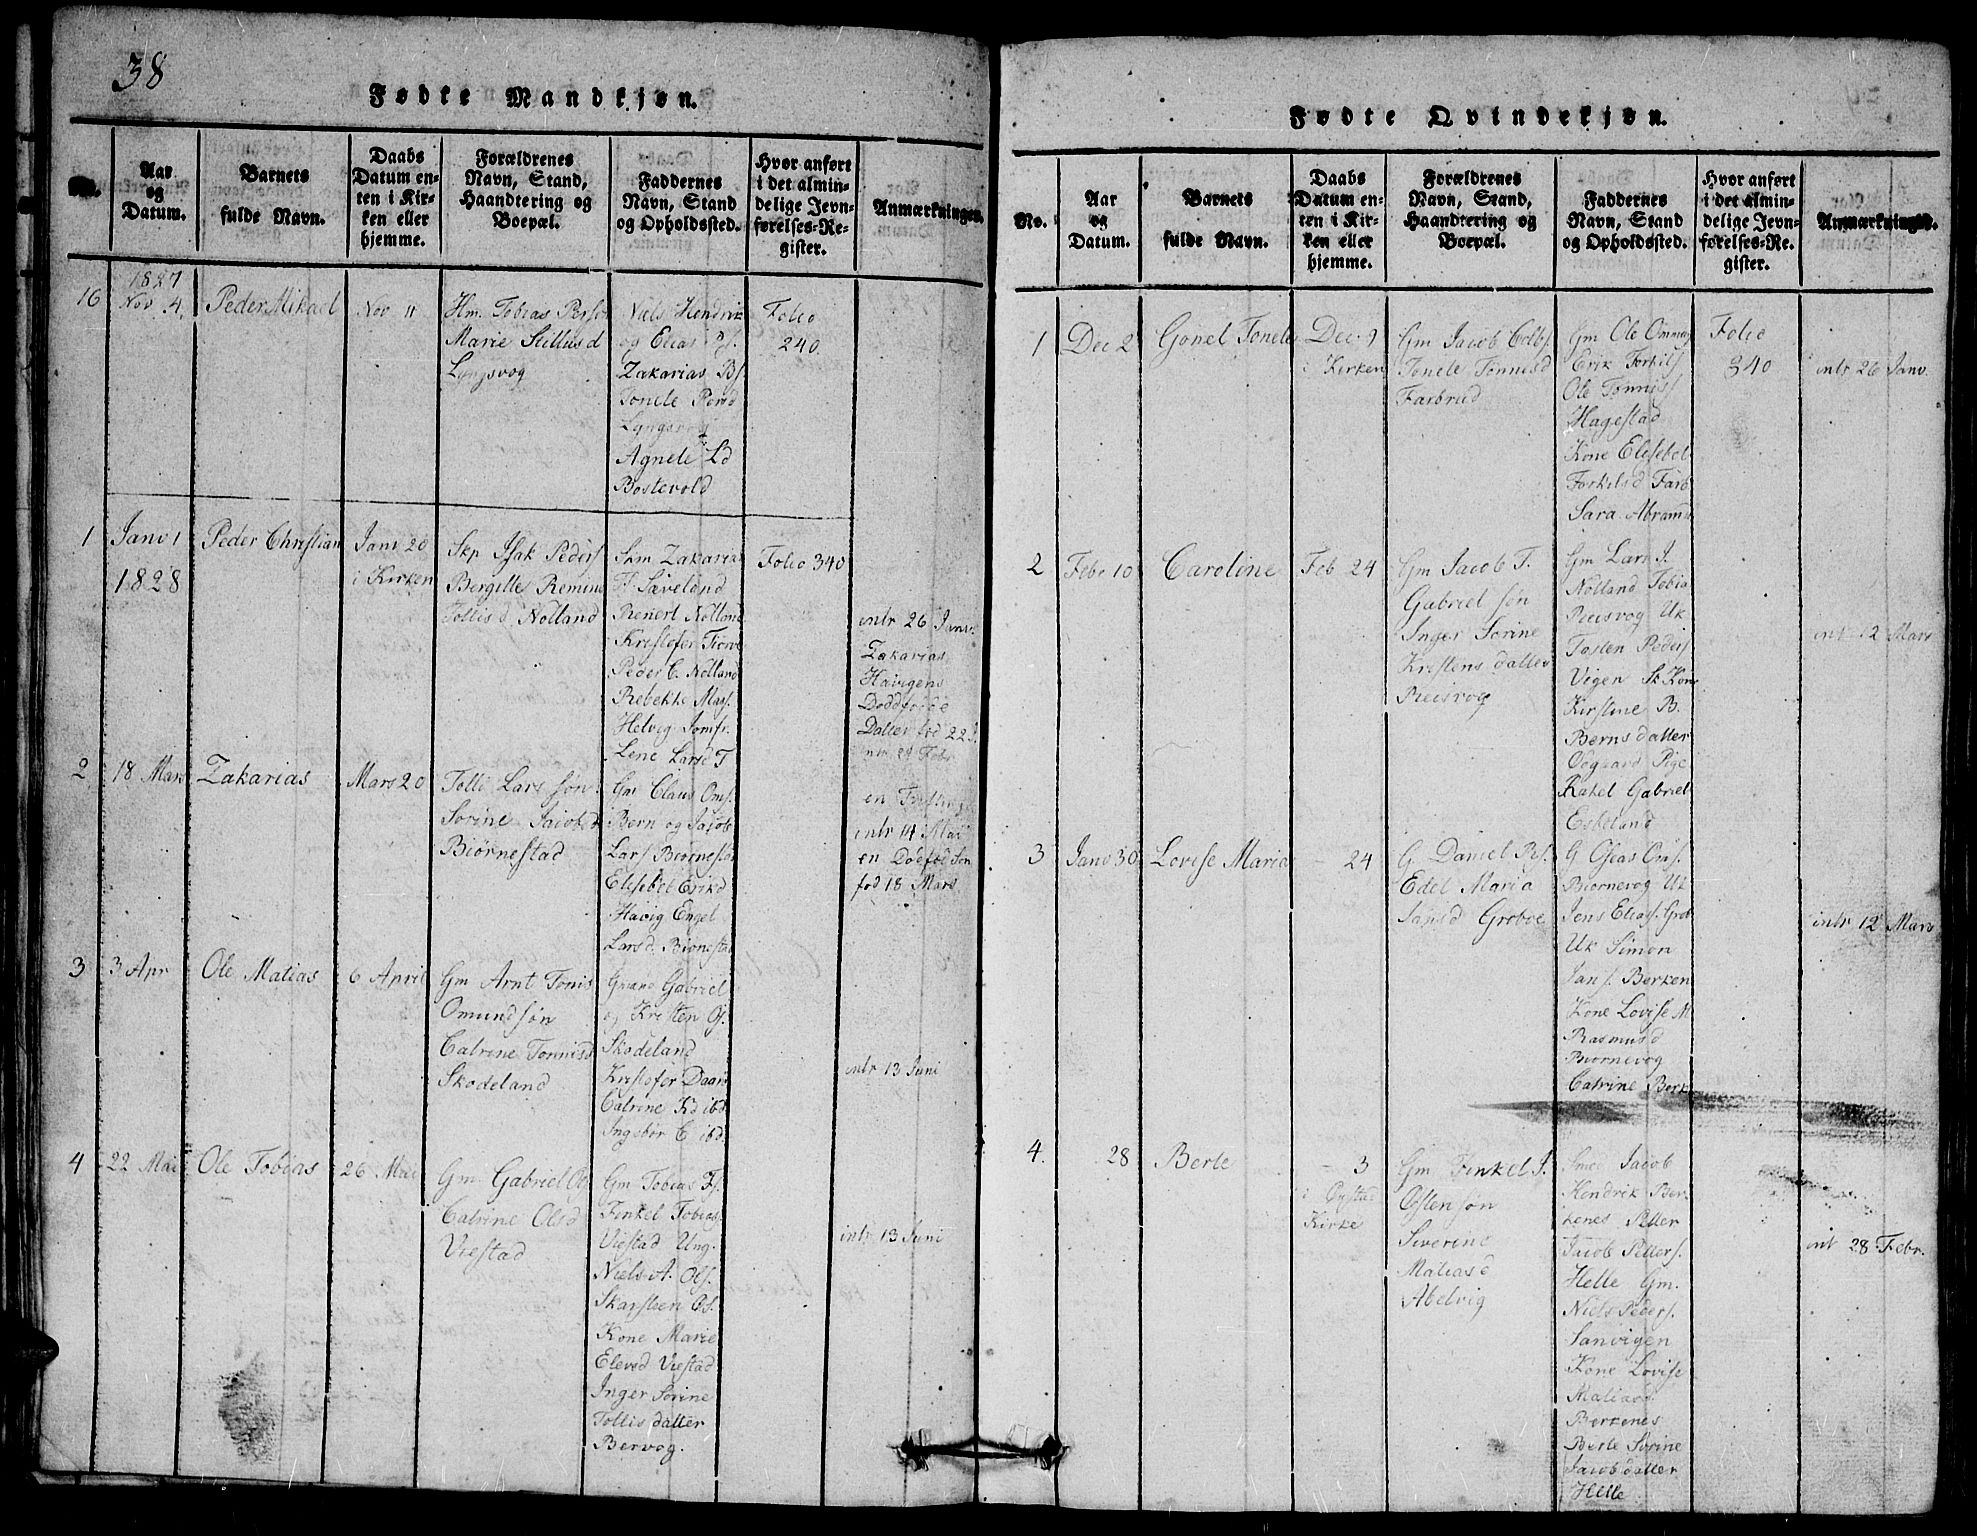 38
Fødte Mandkjøn.
No.
Aar
og
Datum.
Barnets
fulde Navn.
Daabs
Datum en-
ten i Kir-
ken eller
hjemme.
Forældrenes
Navn, Stand,
Haandtering og
Boepæl.
Faddernes
Navn, Stand
og Opholdssted.
Hvor anført
i det almin-
delige Jevn-
førelses-Re-
gister.
Anmærkninger.
16
1827
Nov 4.
Peder Mikael
Nov 11
Hm. Tobias Perso
Marie Stillus d
Lyngsvog
Niels Hendrik
og Elias
Zakarias Bs.
Tonele Persd
Lyngsvog
Agnete Ld
Bostevold
Folio
240
1
Janv 1
1828
Peder Christian
Janv 20
i Kirken
Skp Isak Peders
Bergitte Remine
Tollis d Nolland
Skm Zakarias
T. Sæveland
Renert Nolland
Kristofer Tiorve
Peder C. Nolland
Rebekke Mas.
Helvig Jomfr.
Lene Larsd T
Folio 340
intr 26 Janv.
Zakarias
Havigens
Dødfødde
Datter fød 22 J.
intr 24 Febr
2
18 Mars
Zakarias
Mars 20
Tolli Lars søn
Sorine Jacobsd
Biørnestad
Gm Claus Oms.
Bern og Jacob
Lars Biørnestad
Elisebet Erikd
Havig Engel
Larsd. Biørnestad
en
intr 14 Mai
en Dødfød Søn
fød 18 Mars
3
3 Apr
Ole Matias
6 April
Gm Arnt Tonis
Omundsøn
Catrine Tonnisd
Skodeland
Gabriel
og Kristen Os.
Skodeland
Kristofer Daar
Catrine Kd ibd
Ingebør C ibd
intr 13 Juni
4
22 Mai
Ole Tobias
26 Mai
Gm. Gabriel Os
Catrine Olsd
Viestad
Gm Tobias Fs.
Finkel Tobias
Viestad Ung.
Niels A. Ols.
Skarsteen Os.
Kone Marie
Elevsd Viestad
Inger Sorine
Tollis datter
Bervog.
intr 13 Juni
Fødte Qvindekjøn.
No.
Aar
og
Datum.
Barnets
fulde Navn.
Daabs
Datum en-
ten i Kir-
ken eller
hjemme.
Forældrenes
Navn, Stand,
Haandtering og
Boepæl.
Faddernes
Navn, Stand
og Opholdssted.
Hvor anført
i det almin-
delige Jevn-
førelses-Re-
gister.
Anmærkninger.
1
Dec 2
Gonel Tonele
Dec. 9
i Kirken
Gm Jacob Colbs.
Tonele Tønnisd
Farbrud
Gm Ole Omma
Erik Torkils
Ole Tønnis
Hagestad
Kone Elisebet
Torkilsd Farb
Sara Abrams
Folio
340
intr 26 Janv.
2
Febr 10
Caroline
Feb 24
Gm Jacob T.
Gabriel søn
Inger Sorine
Kristens datter
Reisvog
Gm Lars J.
Nolland Tobia
Reisvog Uk
Tosten Peders
Vigen Sk Kone
Kirstine B.
Berns datter
Odgaard Pige
Rakel Gabriel
Eskeland
intr 12 Mars
3
Janv 30
Lovise Maria
- 24
G Daniel Rs.
Edel Maria
Jansd Groboe
G Oseas Oms.
Biørnevog Uk
Jens Elias. Grob
Uk Simon
Jans. Berken
Kone Lovise M
Rasmusd
Biørnevog
Catrine Berk
intr 12 Mars
4.
28
Berte
- 3
i
Kirke
Gm Finkel J.
Osten søn
Siverine
Matias d
Abelvig
Jacob
Hendrik Ber
kenes Petter
Jacob Petters.
Helle Gm.
Niels Peders.
Sanvigen
Kone Lovise
Matiasd
Berkenes
Berte Sorine
Jacobdatter
Helle
int 28 Febr.